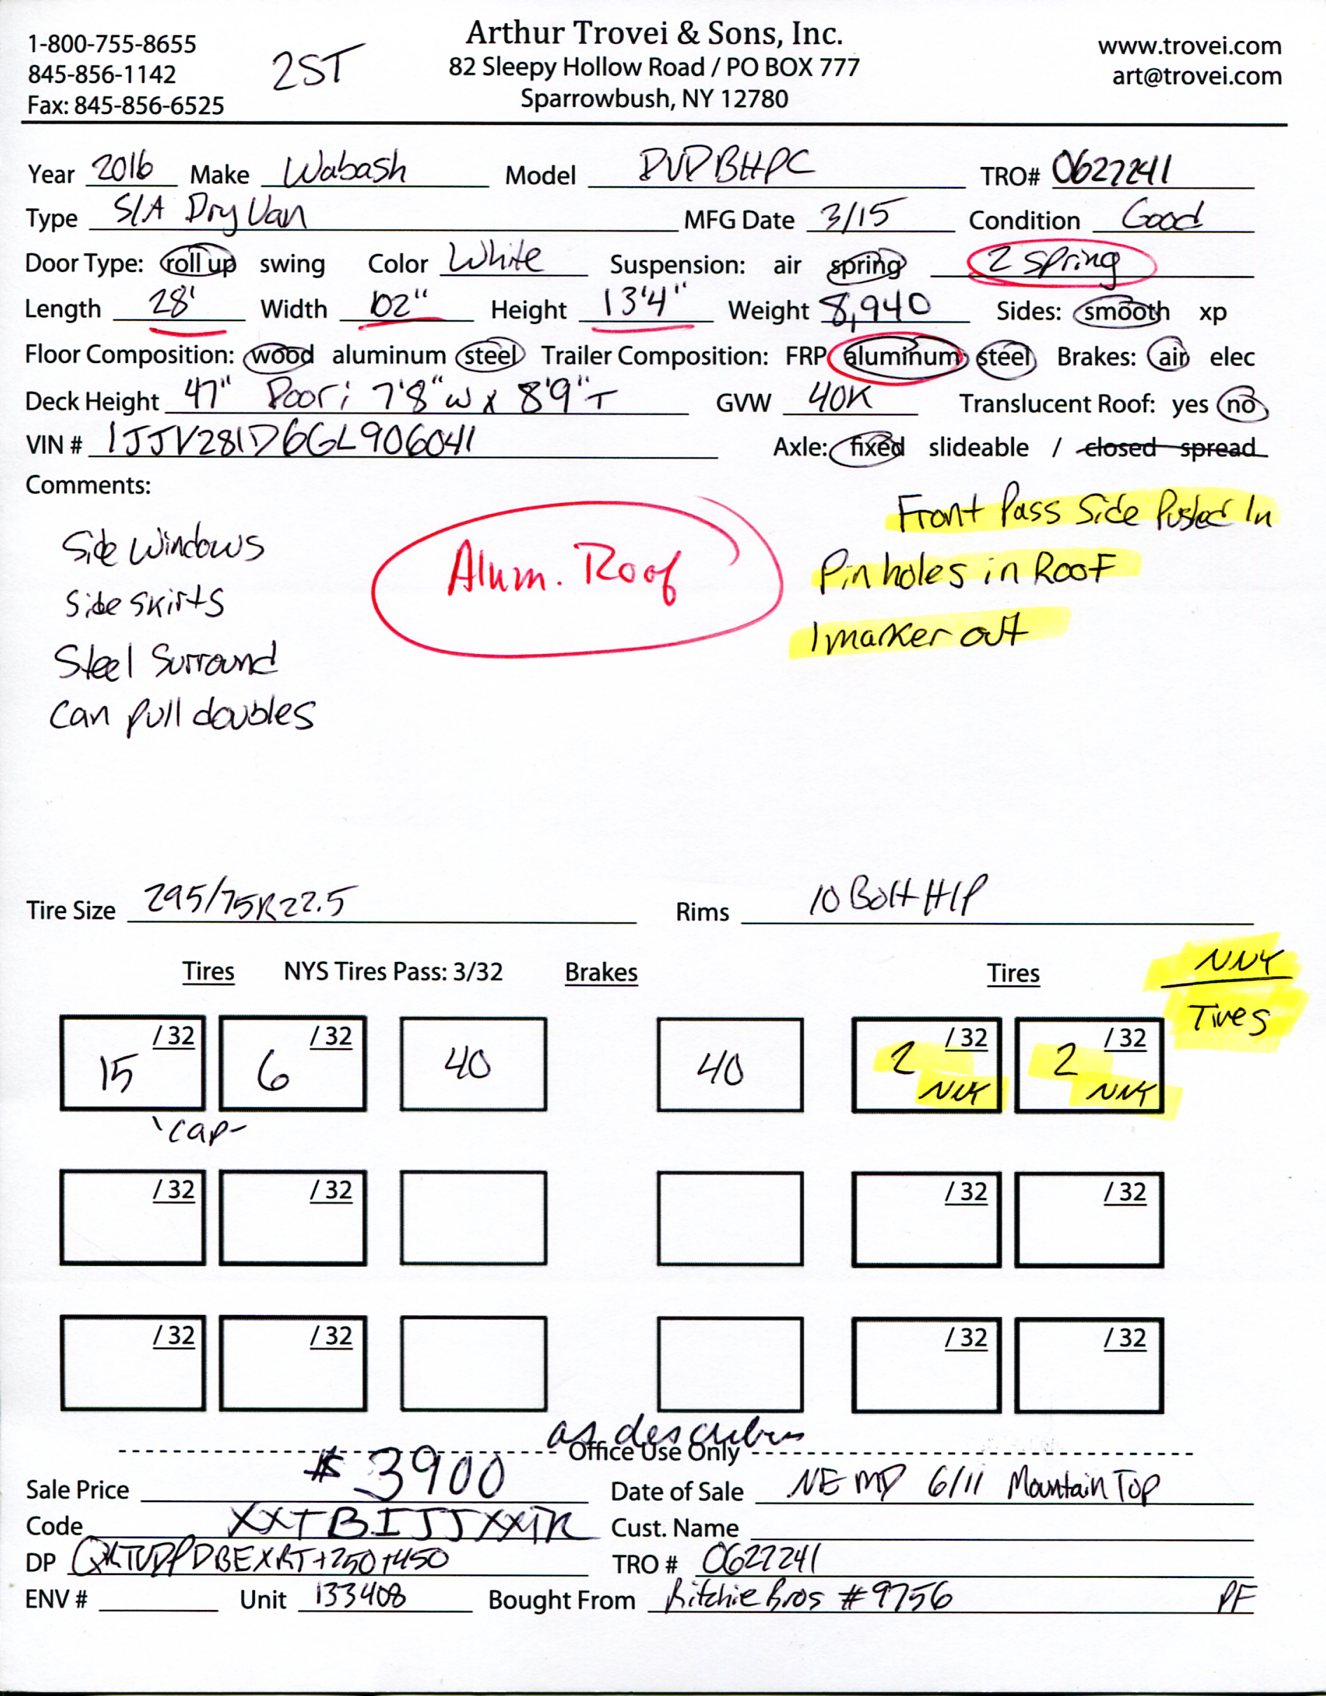 1-800-755-8655
845-856-1142
Fax: 845-856-6525
2ST
Arthur Trovei & Sons, Inc.
82 Sleepy Hollow Road / PO BOX 777
Sparrowbush, NY 12780
www.trovei.com
art@trovei.com
Year 2016 Make Wabash Model DVDBHPC TRO# 0627241
Type S/A Dry Van MFG Date 3/15 Condition Good
Door Type: roll up swing Color White Suspension: air spring 2 spring
Length 28' Width 102" Height 13'4" Weight 8,940 Sides: smooth xp
Floor Composition: wood aluminum steel Trailer Composition: FRP aluminum steel Brakes: air elec
Deck Height 47" Door: 7'8"W x 8'9"T GVW 40K Translucent Roof: yes no
VIN # 1JJV281D6GL906041 Axle: fixed slideable / closed spread
Comments:
Side Windows
Side Skirts
Steel Surround
Can pull doubles
Alum. Roof
Front Pass Side Pushed In
Pin holes in Roof
1 marker out
Tire Size 295/75R22.5 Rims 10 Bolt H/P
Tires NYS Tires Pass: 3/32 Brakes Tires
NNY
Tires
15 /32 6 /32 40 40 2 /32 NNY 2 /32 NNY
cap
/32 /32 /32 /32
/32 /32 /32 /32
as described
Office Use Only
Sale Price $3900 Date of Sale NE MP 6/11 Mountain Top
Code Cust. Name
DP TRO # 0627241
ENV # Unit 133408 Bought From Ritchie Bros #9756 PF